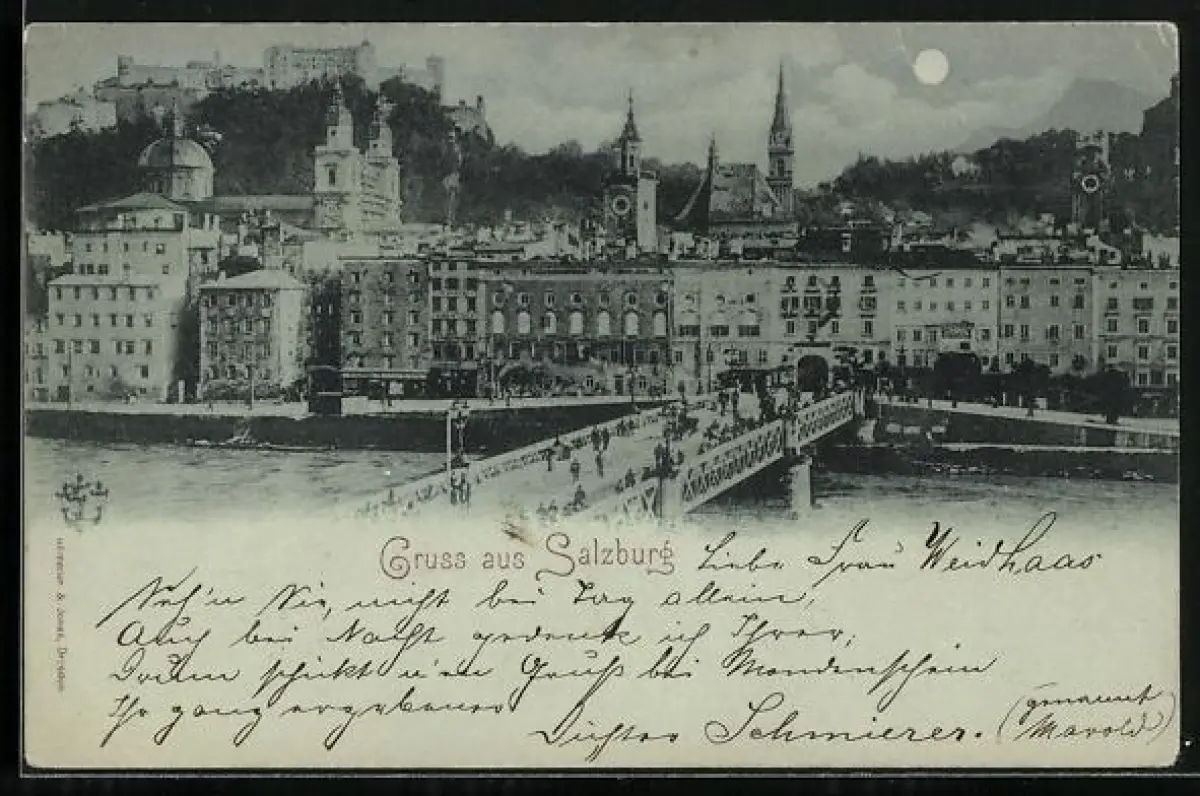 Gruss aus Salzburg
Liebe Frau Weidhaas
Seh'n Sie, nicht bei Tag allein,
Auch bei Nacht gedenke ich Ihrer,
Drum schickt u'en Gruß bei Mondenschein
Ihr ganz ergebener
Dichter Schmierer.
(genannt
Marold)
Stengel & Dresden